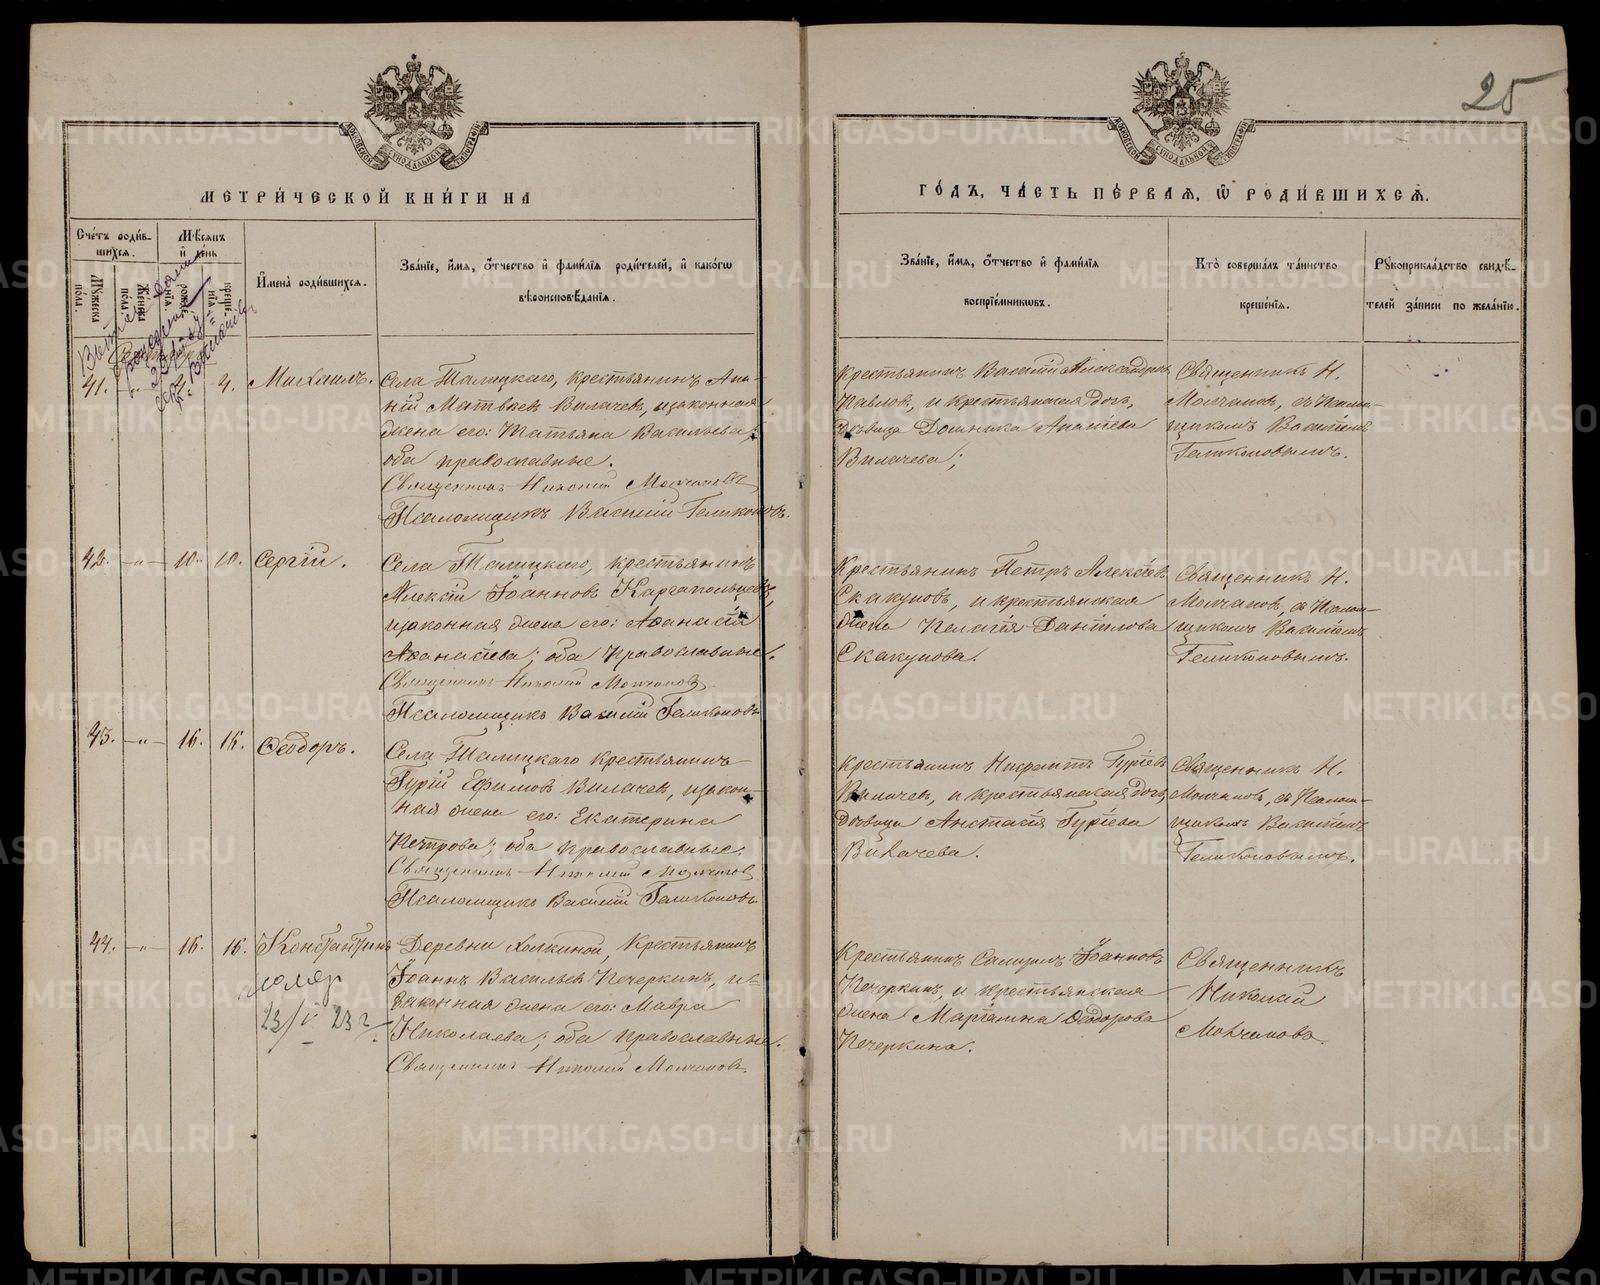 25
МОСКОВСКОЙ СѴНОДАЛЬНОЙ ТИПОГРАФІИ
МОСКОВСКОЙ СѴНОДАЛЬНОЙ ТИПОГРАФІИ
МЕТРИ́ЧЕСКОЙ КНИ́ГИ НА
ГО́ДЪ, ЧА́СТЬ ПЕ́РВАЯ, Ѿ РОДИ́ВШИХСЯ.
Сче́тъ роди́в-
шихся.
Мѣсяцъ
и де́нь
Му́жеска
по́ла.
Же́нска
по́ла.
рожде́-
нія.
креще́-
нія.
Имена̀ роди́вшихся.
Зва́ніе, и́мя, о́тчество и фами́лія роди́телей, и како́гѡ
вѣроисповѣ́данія.
Зва́ніе, и́мя, о́тчество и фами́лія
воспріе́мниковъ.
Кто̀ соверша́лъ та́инство
креще́нія.
Рукоприкла́дство свидѣ́-
телей за́писи по жела́нію.
41. - " - 4. Михаилъ.
Села Талицкаго, крестьянинъ Ана-
ній Матвѣевъ Вилачев, и законная
жена его: Татьяна Васильева;
оба православные.
Священникъ Николай Молчановъ
Псаломщикъ Василій Геликоновъ.
Крестьянинъ Василій Александров
Павлов, и крестьянская дочь,
дѣвица Домника Ананіева
Вилачева;
Священникъ Н.
Молчанов, съ Псалом-
щикомъ Василіемъ
Геликоновымъ.
42. - " - 10. 10. Сергій.
Села Талицкаго, крестьянинъ
Алексій Іоаннов Каргапольцев,
и законная жена его: Аѳанасія
Аѳанасіева; оба Православные.
Священникъ Николай Молчановъ
Псаломщикъ Василій Геликоновъ
Крестьянинъ Петръ Алексіев
Скакуновъ, и крестьянская
жена Пелагія Данилова
Скакунова.
Священникъ Н.
Молчанов, съ Псалом-
щикомъ Василіемъ
Геликоновымъ.
43. - " - 16. 16. Ѳеодоръ.
Села Талицкаго крестьянинъ
Гурій Ефимов Вилачев, и закон-
ная жена его: Екатерина
Петрова; оба православные.
Священникъ Николай Молчанов
Псаломщикъ Василій Геликоновъ
Крестьянинъ Гуріев
Вилачев, и крестьянская дочь,
дѣвица Анстасія Гуріева
Вилачева.
Священникъ Н.
Молчанов, съ Псалом-
щикомъ Василіемъ
Геликоновымъ.
44. - " - 16. 16. Константинъ
умер
23/V 23 г.
Деревни Холкиной, Крестьянинъ
Іоаннъ Васильев Печеркинъ, и
законная жена его: Мавра
Николаева; оба православные.
Священникъ Николай Молчановъ.
Крестьянинъ Самуилъ Іоаннов
Печеркинъ, и крестьянская
жена Маріамна Ѳеодорова
Печеркина.
Священникъ
Николай
Молчановъ.
METRIKI.GASO-URAL.RU